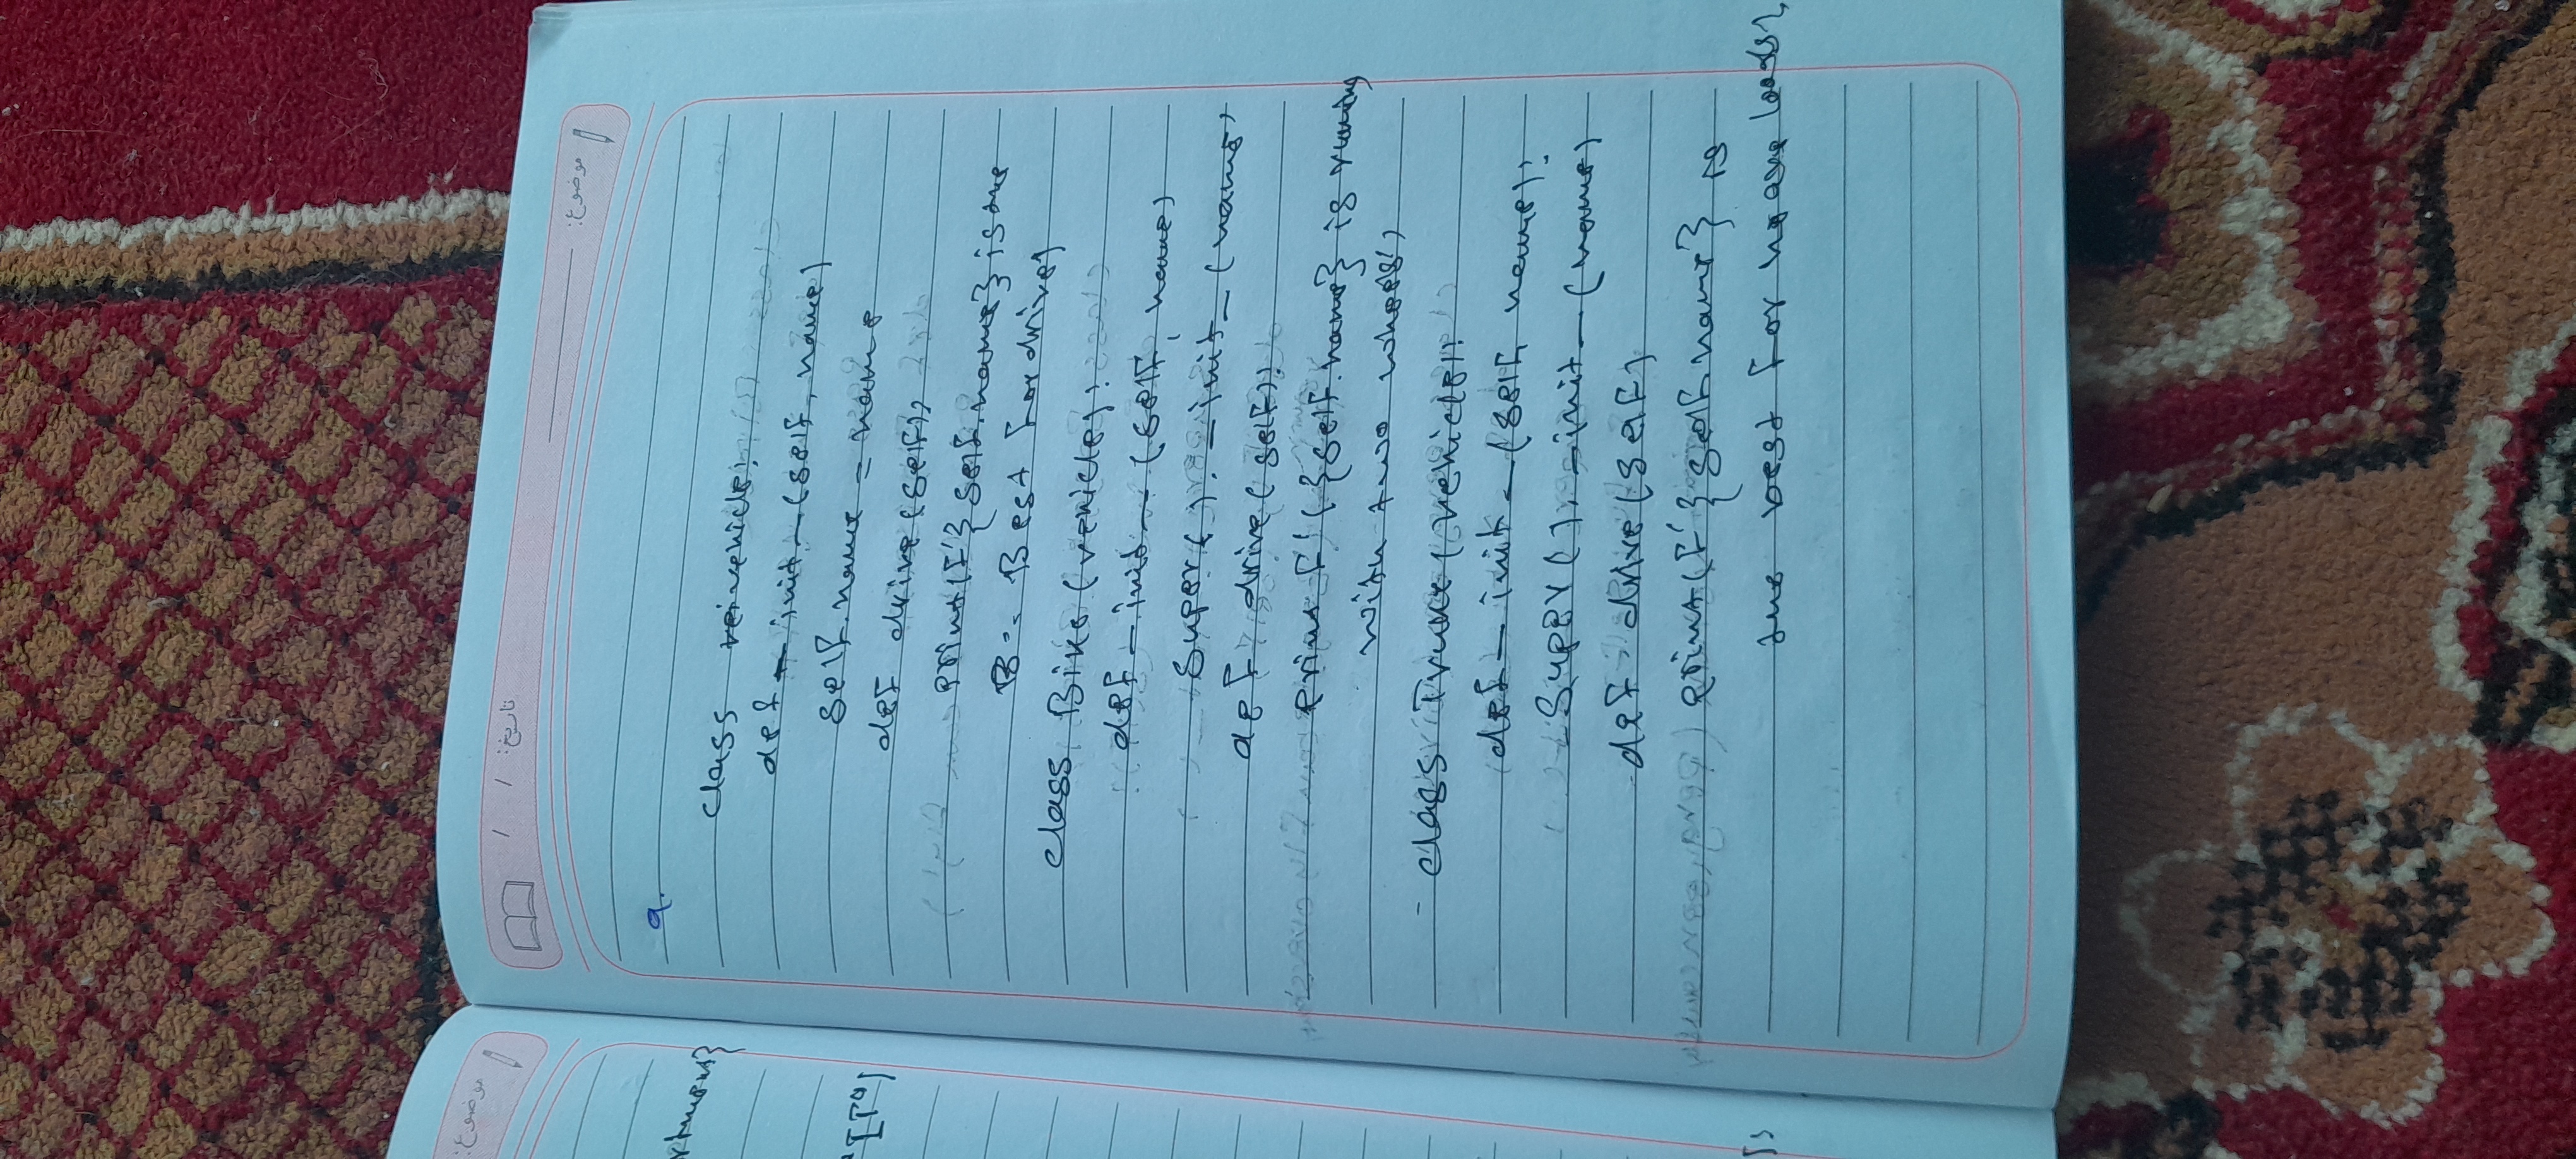 موضوع:
تاريخ: / /
موضوع:
rtment}
9.
class vehicle:
def _init_(self, name)
self.name = name
def drive(self):
print(f'{self.name} is the
Best for drive)
class Bike(vehicle):
def _init_(self, name)
super()._init_(name)
def drive(self):
print f'({self.name} is runing
with two wheels')
class Truck(vehicle):
def _init_(self, name):
super()._init_(name)
def drive(self)
print(f'{self.name} is
the best for loads)